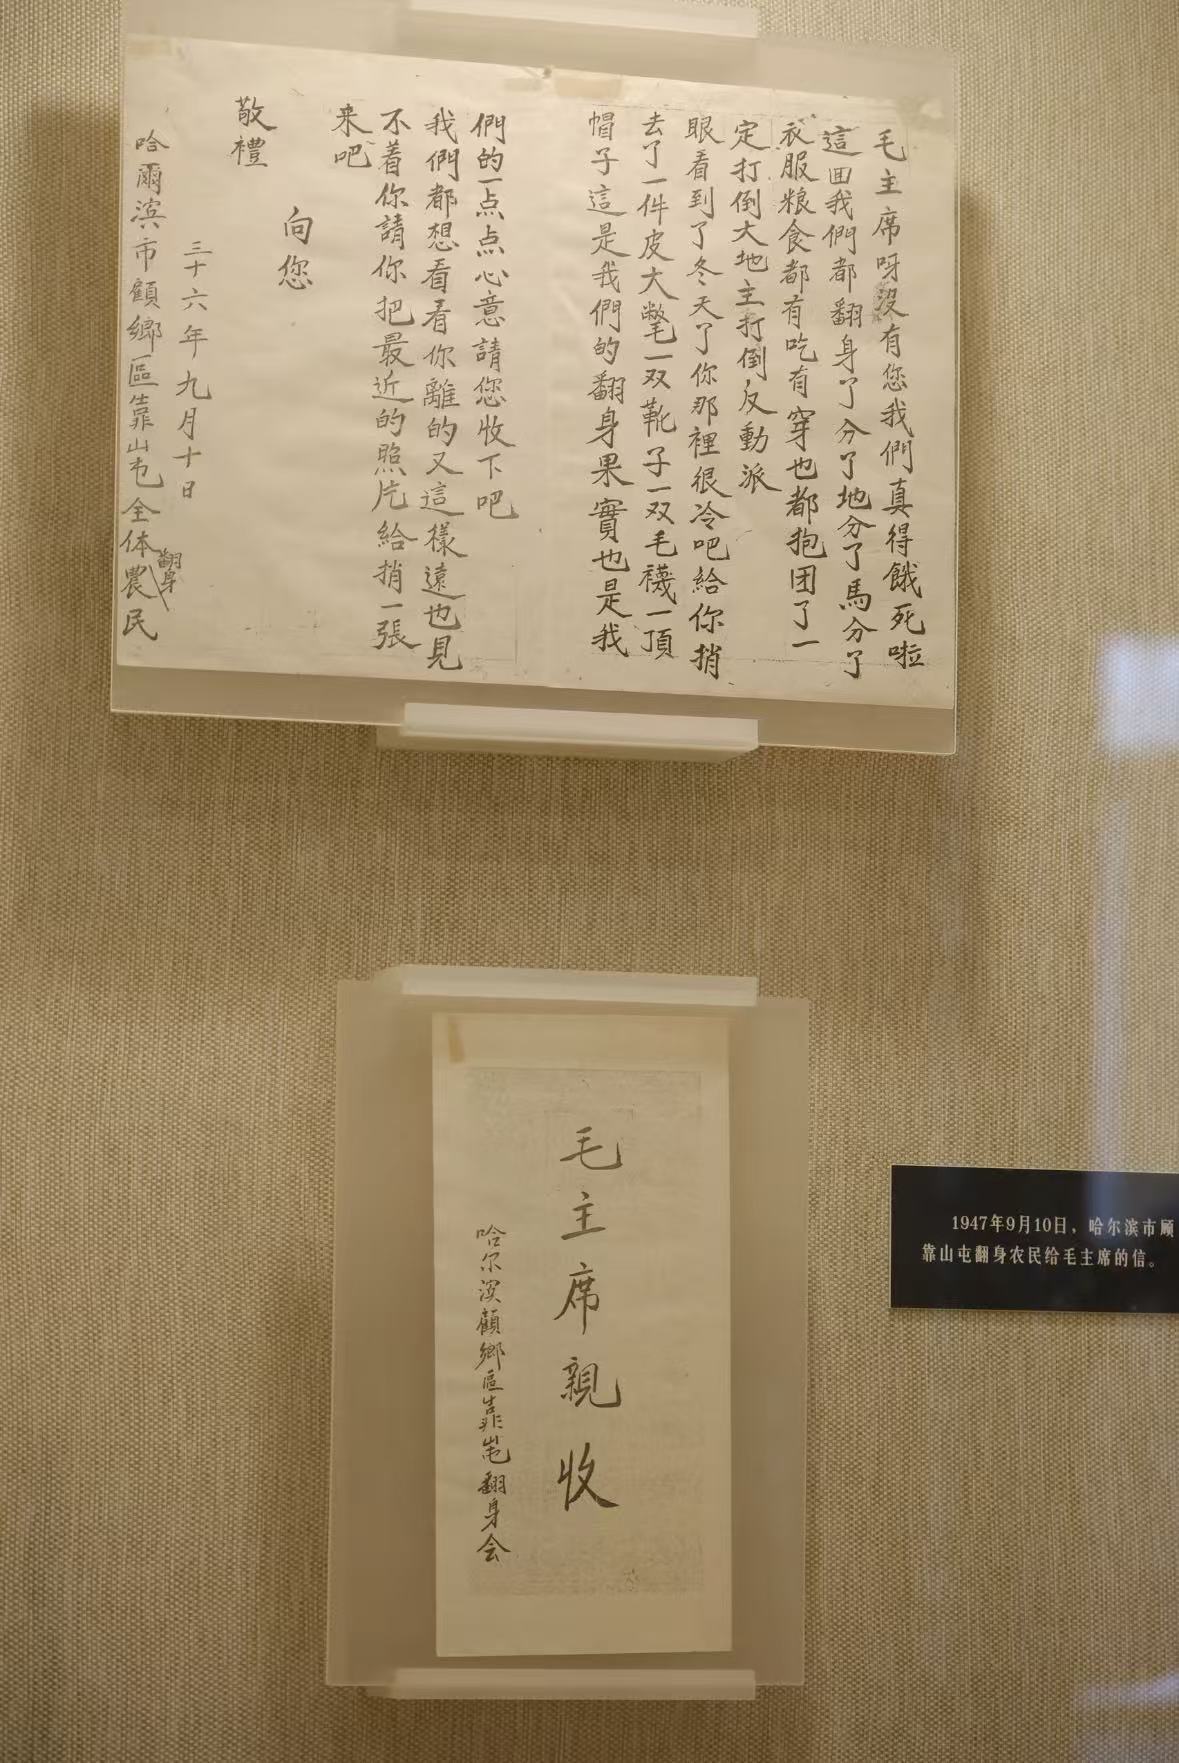 毛主席呀沒有您我們真得餓死啦
這回我們都翻身了分了地分了馬分了
衣服粮食都有吃有穿也都抱团了一
定打倒大地主打倒反動派
眼看到了冬天了你那裡很冷吧給你捎
去了一件皮大氅一双靴子一双毛襪一頂
帽子這是我們的翻身果實也是我
們的一点点心意請您收下吧
我們都想看看你離的又這樣遠也見
不着你請你把最近的照片給捎一張
来吧
向您
敬禮
三十六年九月十日
哈爾滨市顧鄉區靠山屯全体翻身農民
毛主席親收
哈尔滨顧鄉區靠山屯翻身会
1947年9月10日，哈尔滨市顾
靠山屯翻身农民给毛主席的信。